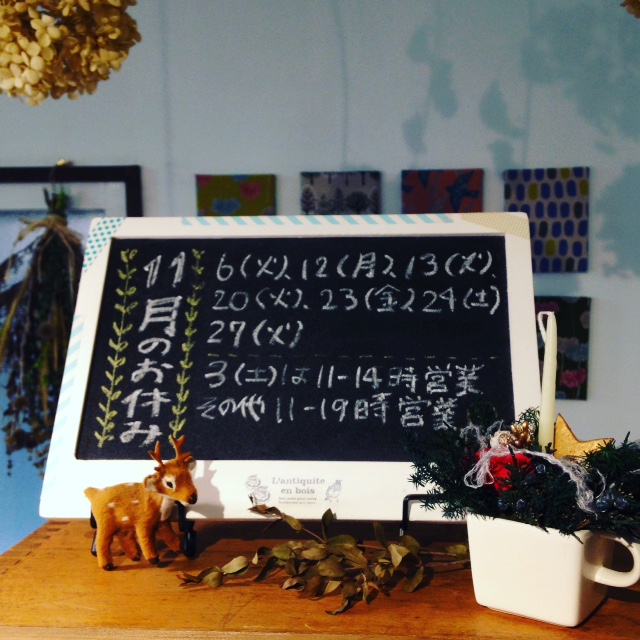 11月のお休み
6(火)、12(月)、13(火)、
20(火)、23(金)、24(土)
27(火)
3(土)は11-14時営業
その他11-19時営業
L'antiquite
en bois